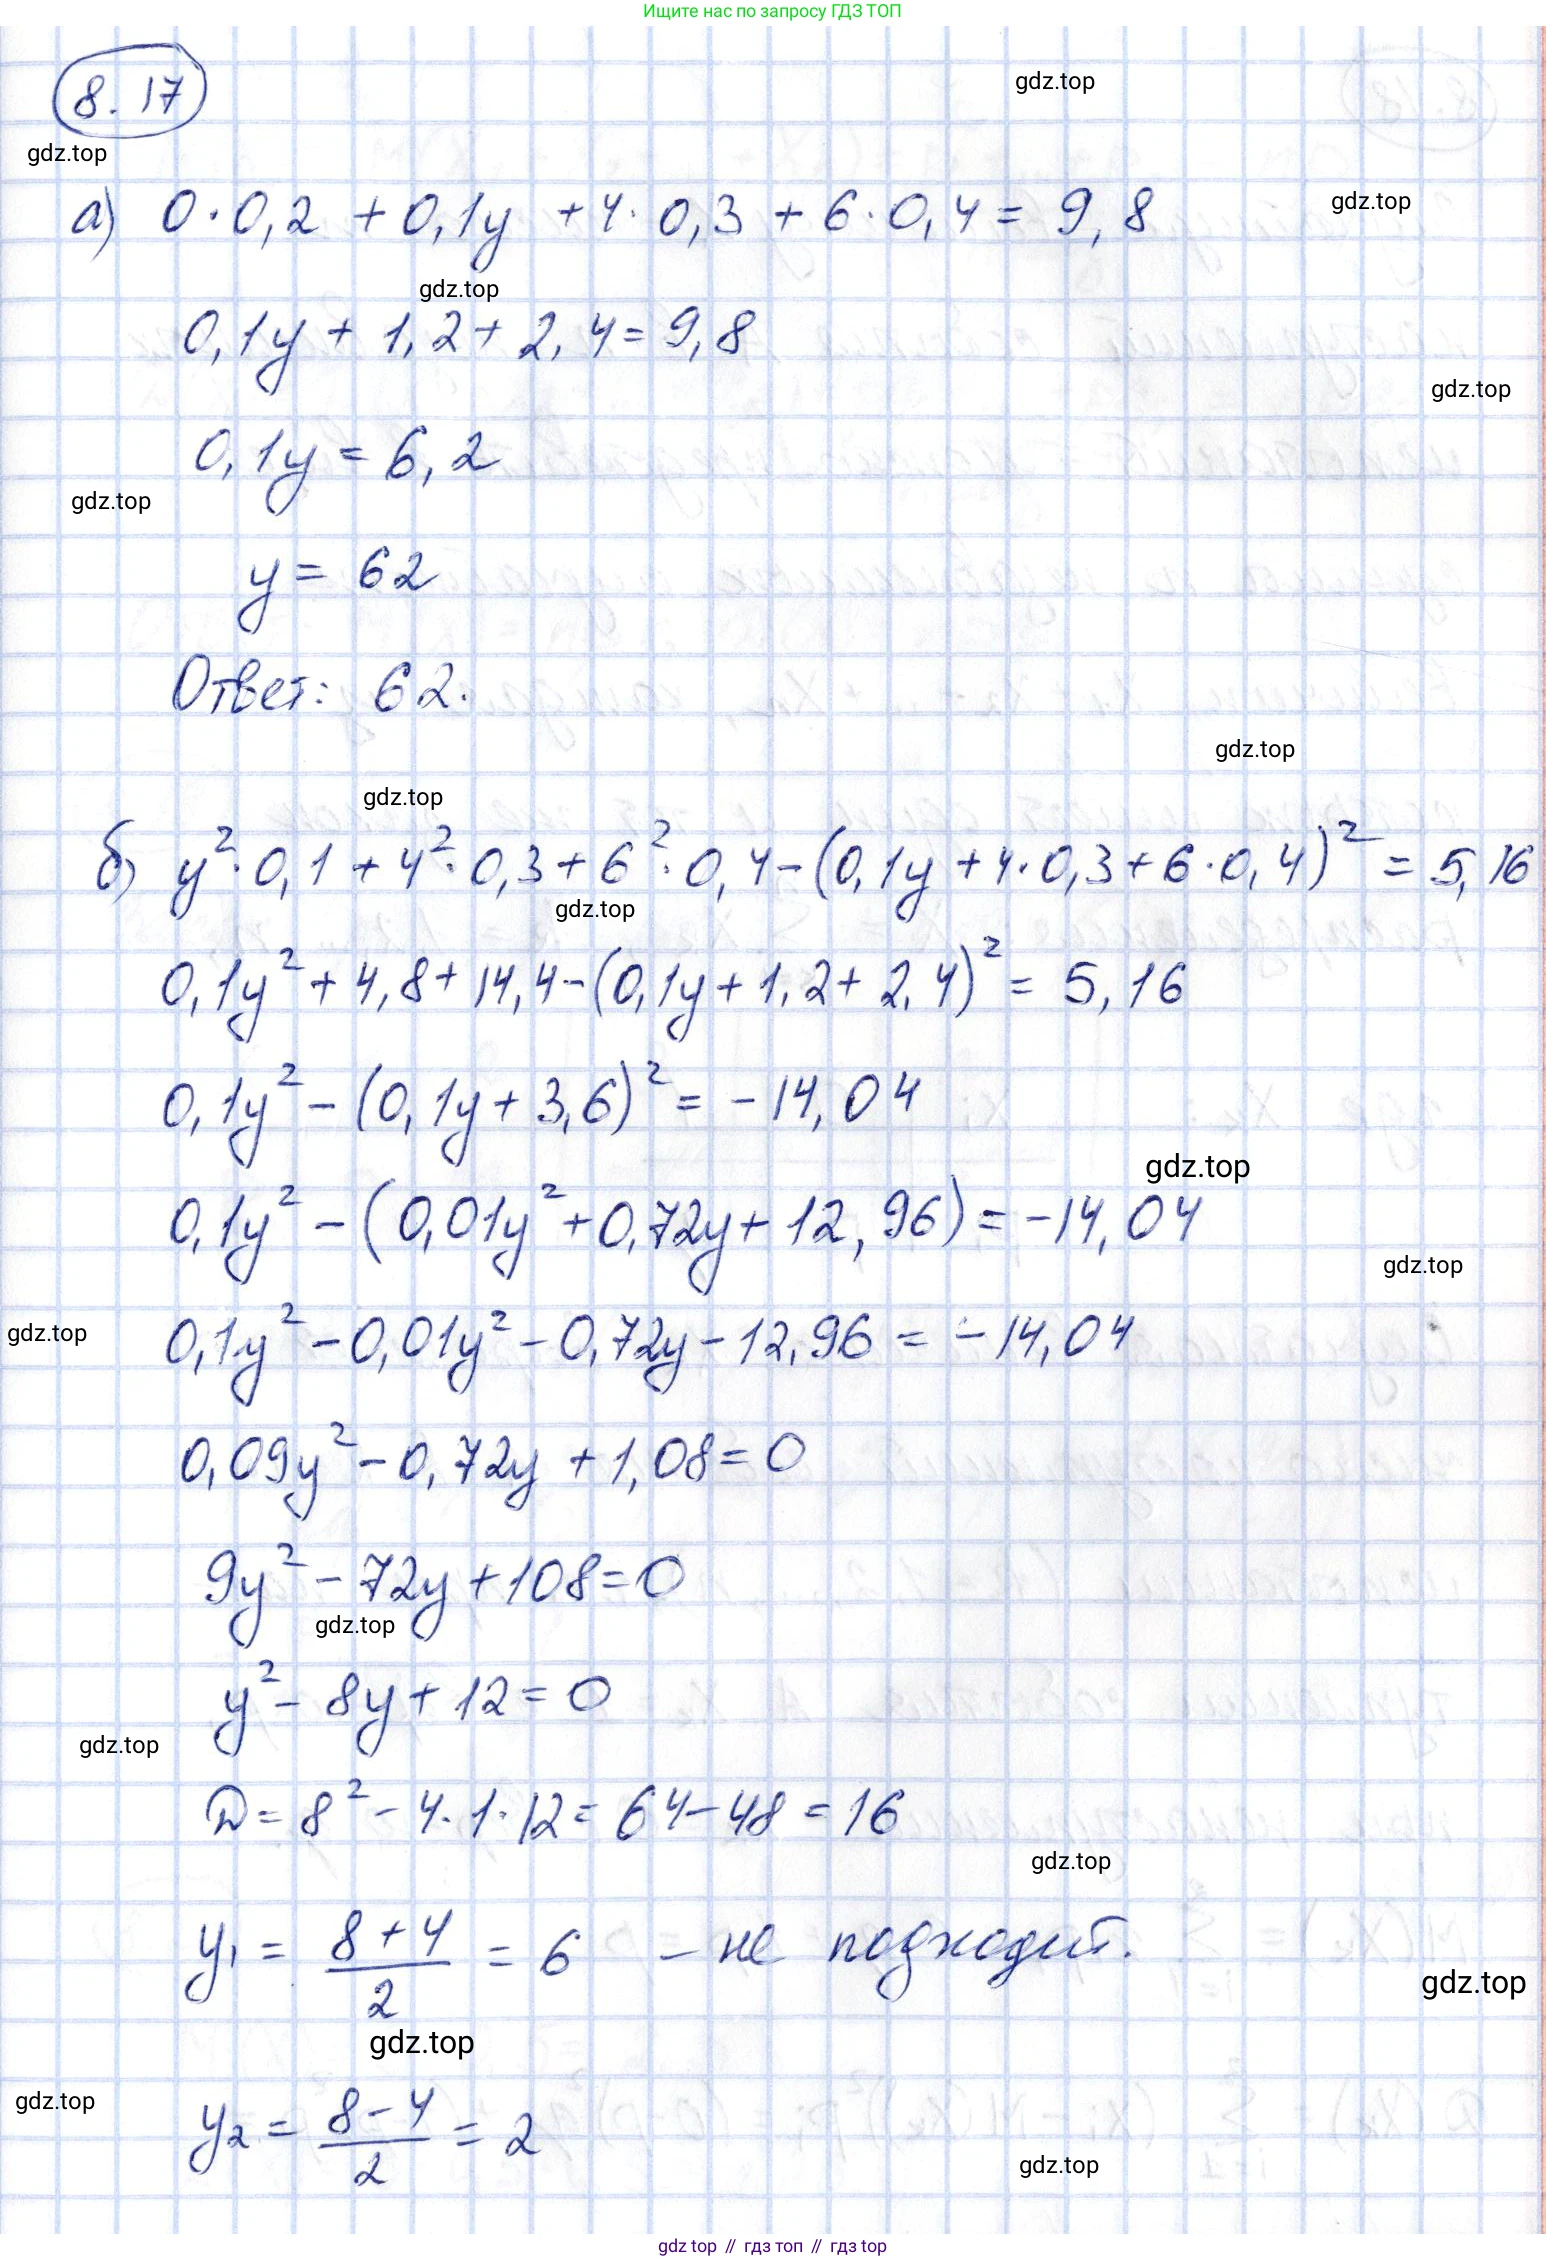 Ищите нас по запросу ГДЗ ТОП
8.17
gdz.top
gdz.top
а) 0·0,2 + 0,1y + 4·0,3 + 6·0,4 = 9,8
gdz.top
gdz.top
0,1y + 1,2 + 2,4 = 9,8
gdz.top
0,1y = 6,2
gdz.top
y = 62
Ответ: 62.
gdz.top
gdz.top
б) y²·0,1 + 4²·0,3 + 6²·0,4 - (0,1y + 4·0,3 + 6·0,4)² = 5,16
gdz.top
0,1y² + 4,8 + 14,4 - (0,1y + 1,2 + 2,4)² = 5,16
0,1y² - (0,1y + 3,6)² = -14,04
gdz.top
0,1y² - (0,01y² + 0,72y + 12,96) = -14,04
gdz.top
gdz.top
0,1y² - 0,01y² - 0,72y - 12,96 = -14,04
0,09y² - 0,72y + 1,08 = 0
9y² - 72y + 108 = 0
gdz.top
y² - 8y + 12 = 0
gdz.top
D = 8² - 4·1·12 = 64 - 48 = 16
gdz.top
y₁ = (8+4)/2 = 6 - не подходит.
gdz.top
gdz.top
gdz.top
y₂ = (8-4)/2 = 2
gdz.top
gdz.top // гдз топ // гдз top